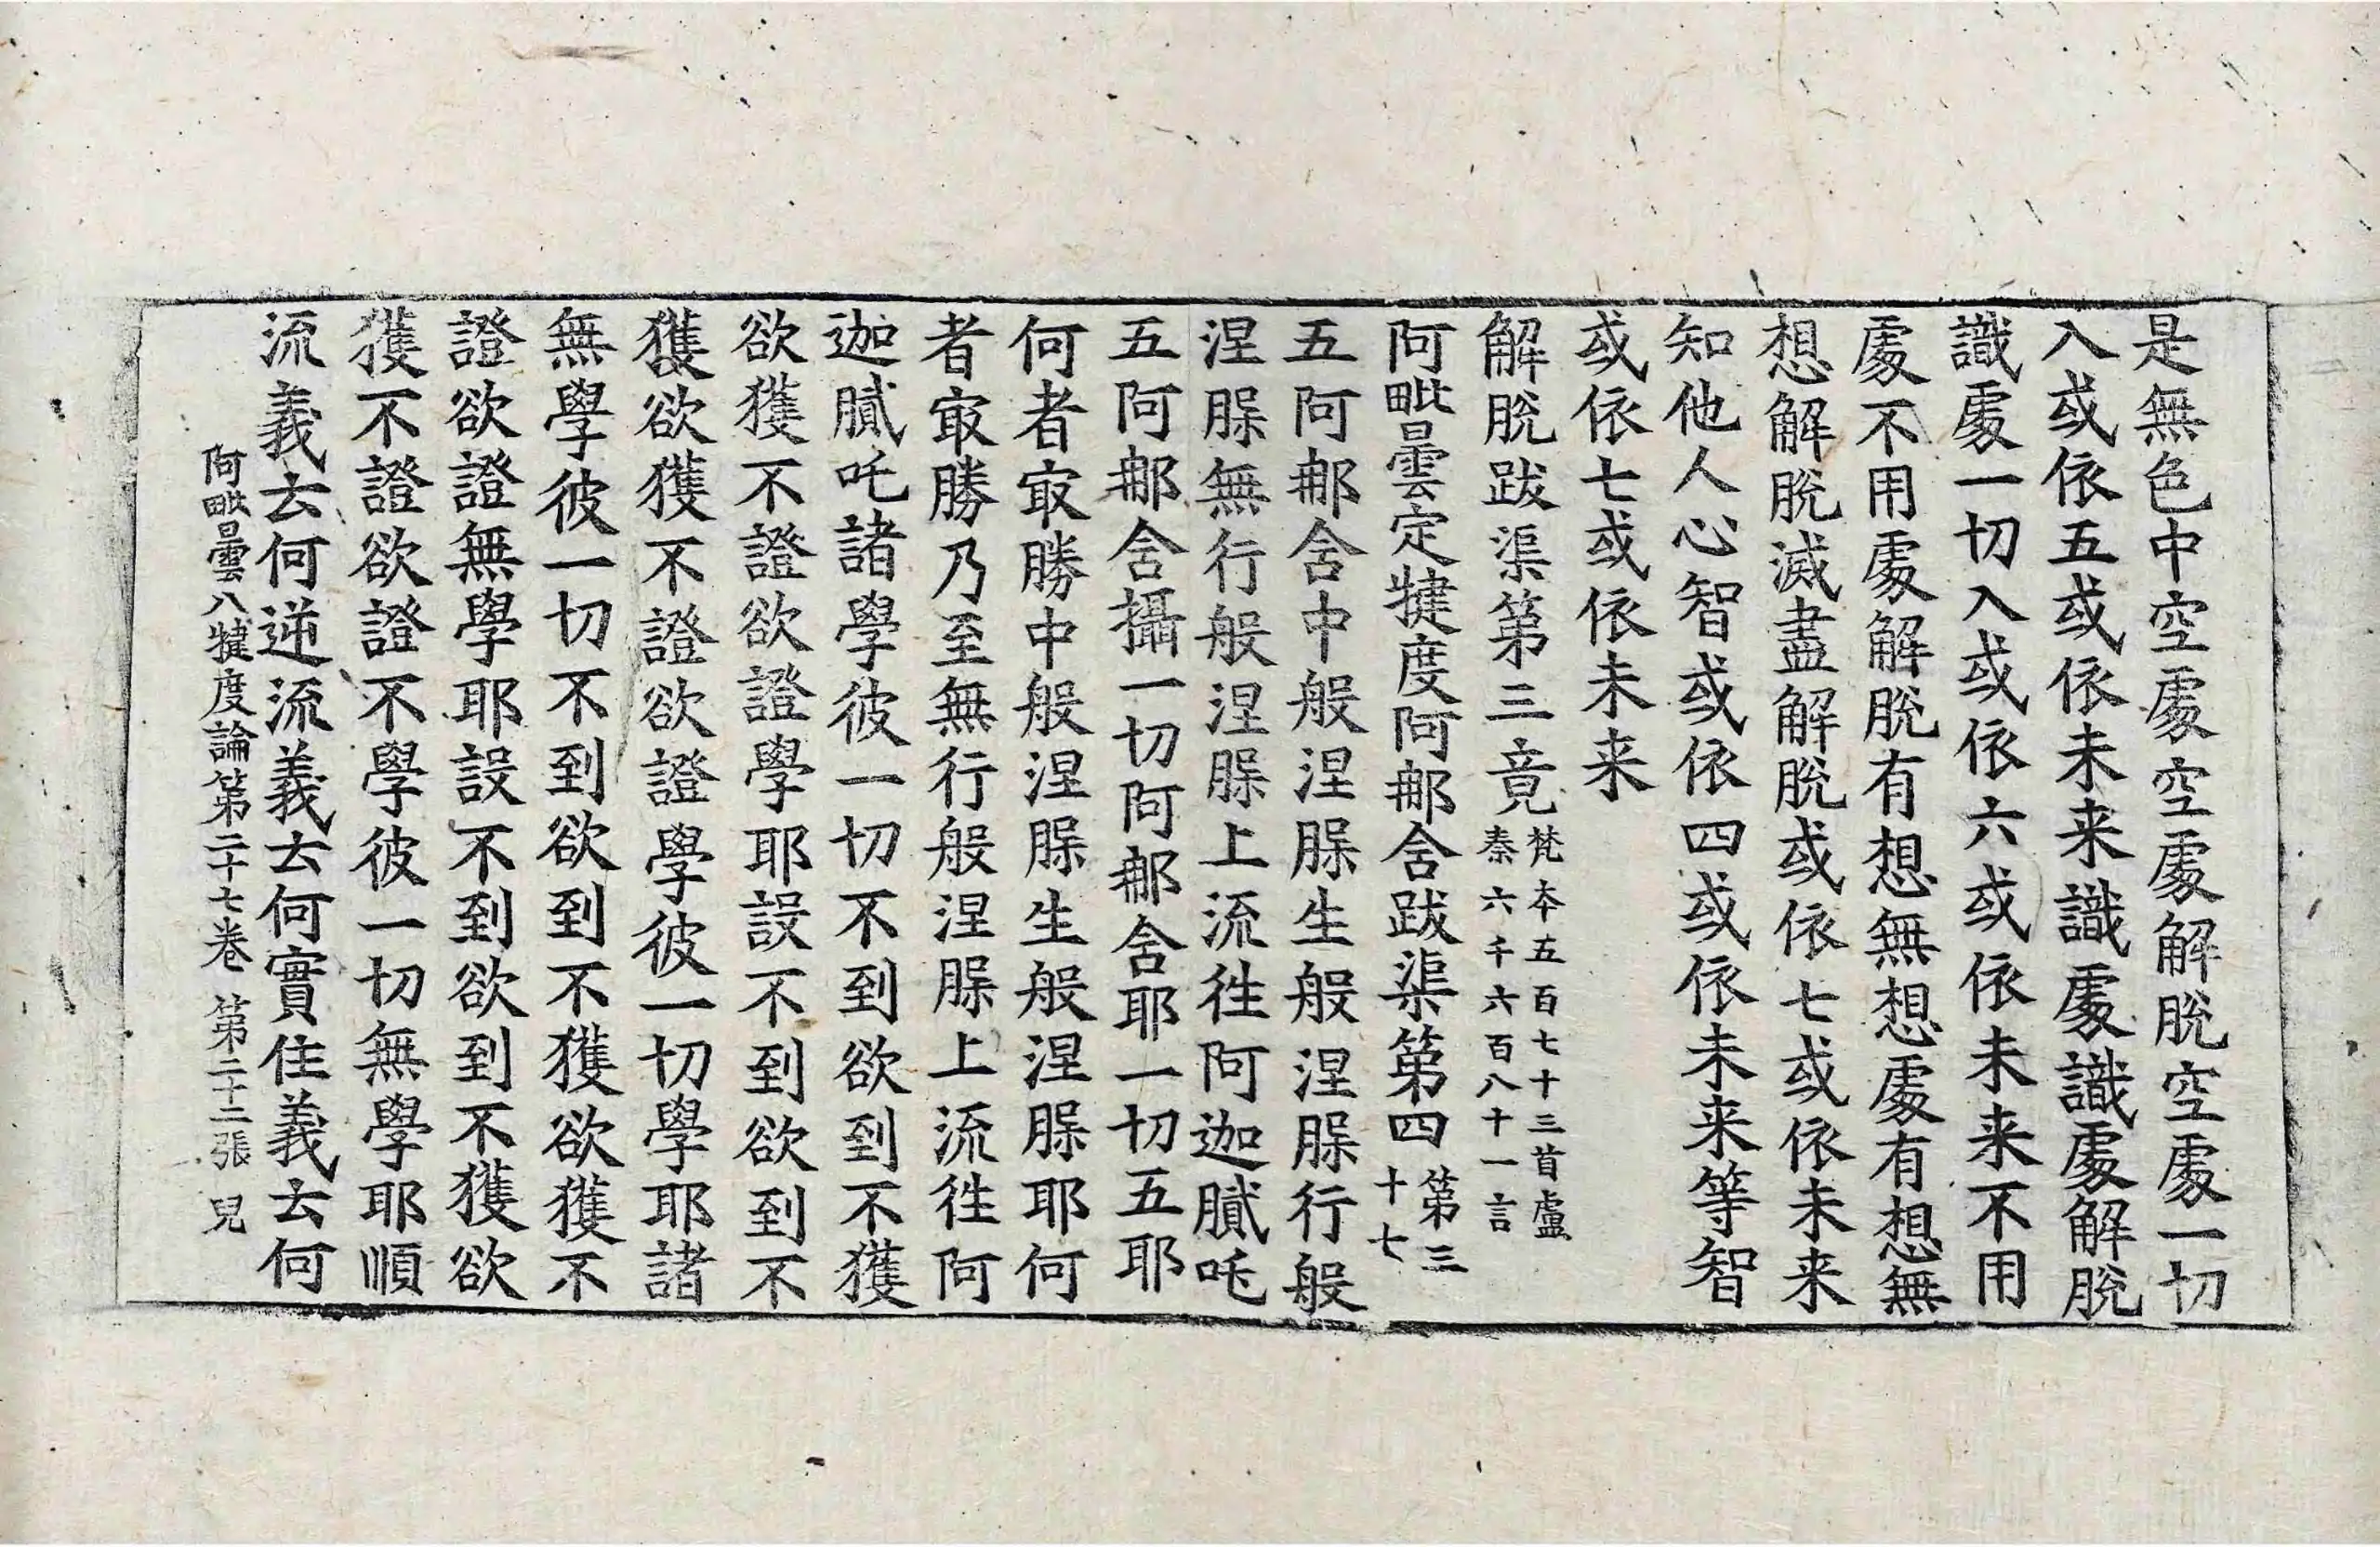 是無色中空處空處解脫空處一切
入或依五或依未来識處識處解脫
識處一切入或依六或依未来不用
處不用處解脫有想無想處有想無
想解脫滅盡解脫或依七或依未来
知他人心智或依四或依未来等智
或依七或依未来
解脫跋渠第三竟梵夲五百七十三首盧秦六千六百八十一言
阿毗曇定犍度阿郍含跋渠第四第三十七
五阿郍含中般涅脵生般涅脵行般
涅脵無行般涅脵上流徃阿迦膩吒
五阿郍含攝一切阿郍含耶一切五耶
何者㝡勝中般涅脵生般涅脵耶何
者㝡勝乃至無行般涅脵上流徃阿
迦膩吒諸學彼一切不到欲到不獲
欲獲不證欲證學耶設不到欲到不
獲欲獲不證欲證學彼一切學耶諸
無學彼一切不到欲到不獲欲獲不
證欲證無學耶設不到欲到不獲欲
獲不證欲證不學彼一切無學耶順
流義云何逆流義云何實住義云何
阿毗曇八犍度論第二十七卷 第二十二張 兒